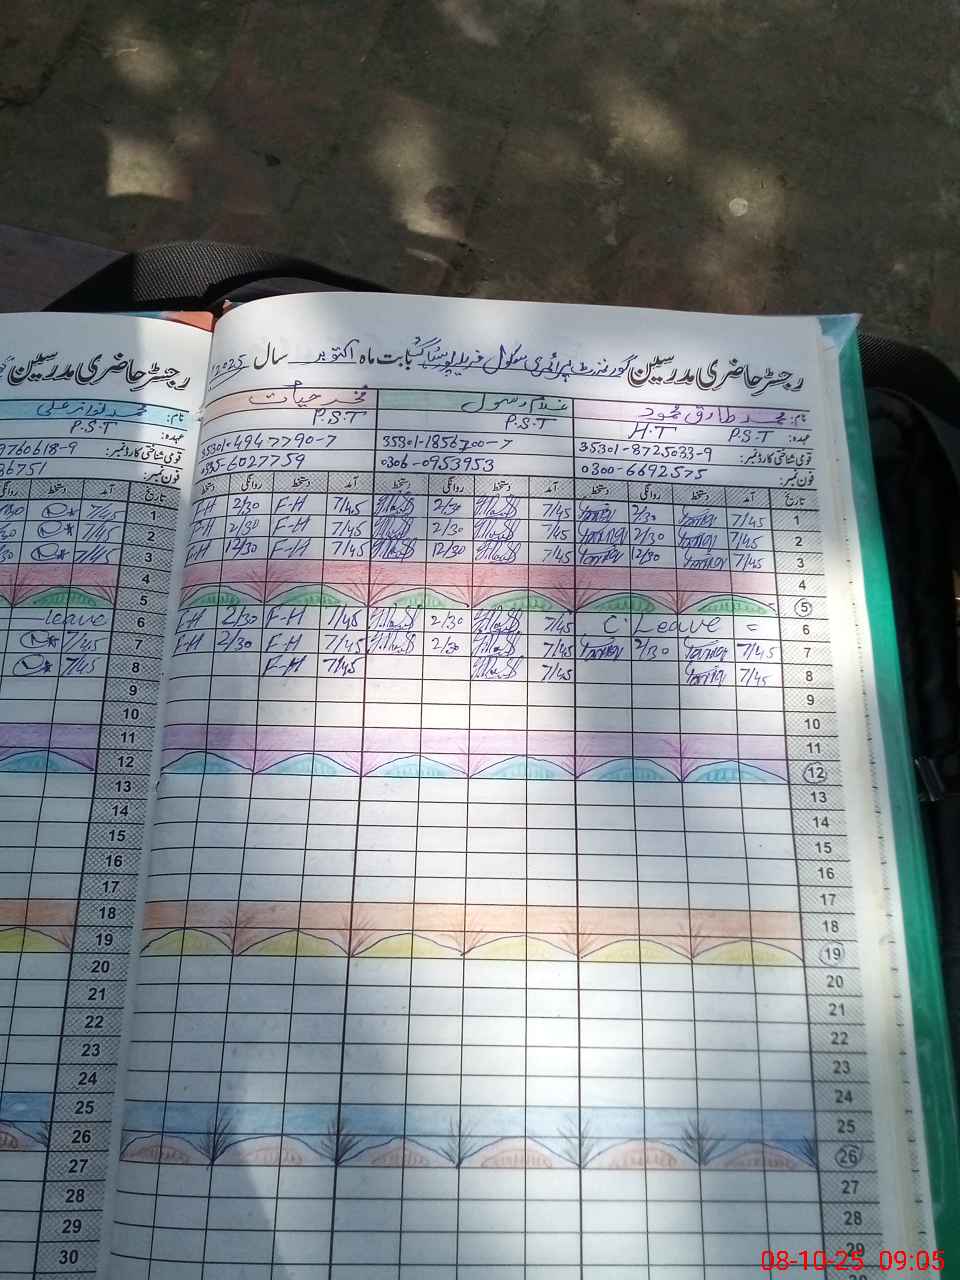 رجسٹر حاضری مدرسین گورنمنٹ پرائمری سکول بابت ماہ اکتوبر سال 2025
نام: محمد طارق محمود غلام رسول محمد حیات
عہدہ: P.S.T H.T P.S.T P.S.T
قومی شناختی کارڈ نمبر: 35301-8725033-9 35301-1856700-7 35301-4947790-7
فون نمبر: 0300-6692575 0306-0953953 0335-6027759
تاریخ آمد دستخط روانگی دستخط آمد دستخط روانگی دستخط آمد دستخط روانگی دستخط
1 7/45 2/30 7/45 2/30 7/45 F-H 2/30 F-H
2 7/45 2/30 7/45 2/30 7/45 F-H 2/30 F-H
3 7/45 12/30 7/45 12/30 7/45 F-H 12/30 F-H
4
5
6 C. Leave = 7/45 2/30 7/45 F-H 2/30 F-H
7 7/45 2/30 7/45 2/30 7/45 F-H 2/30 F-H
8 7/45 7/45 7/45 F-H
9
10
11
12
13
14
15
16
17
18
19
20
21
22
23
24
25
26
27
28
29
رجسٹر حاضری مدرسین
نام: محمد نواز علی
عہدہ: P.S.T
قومی شناختی کارڈ نمبر: 9760618-9
فون نمبر: 36751
تاریخ آمد دستخط روانگی
1 7/45
2 7/45
3 7/45
4
5
6 leave
7 7/45
8 7/45
9
10
11
12
13
14
15
16
17
18
19
20
21
22
23
24
25
26
27
28
29
30
08-10-25 09:05